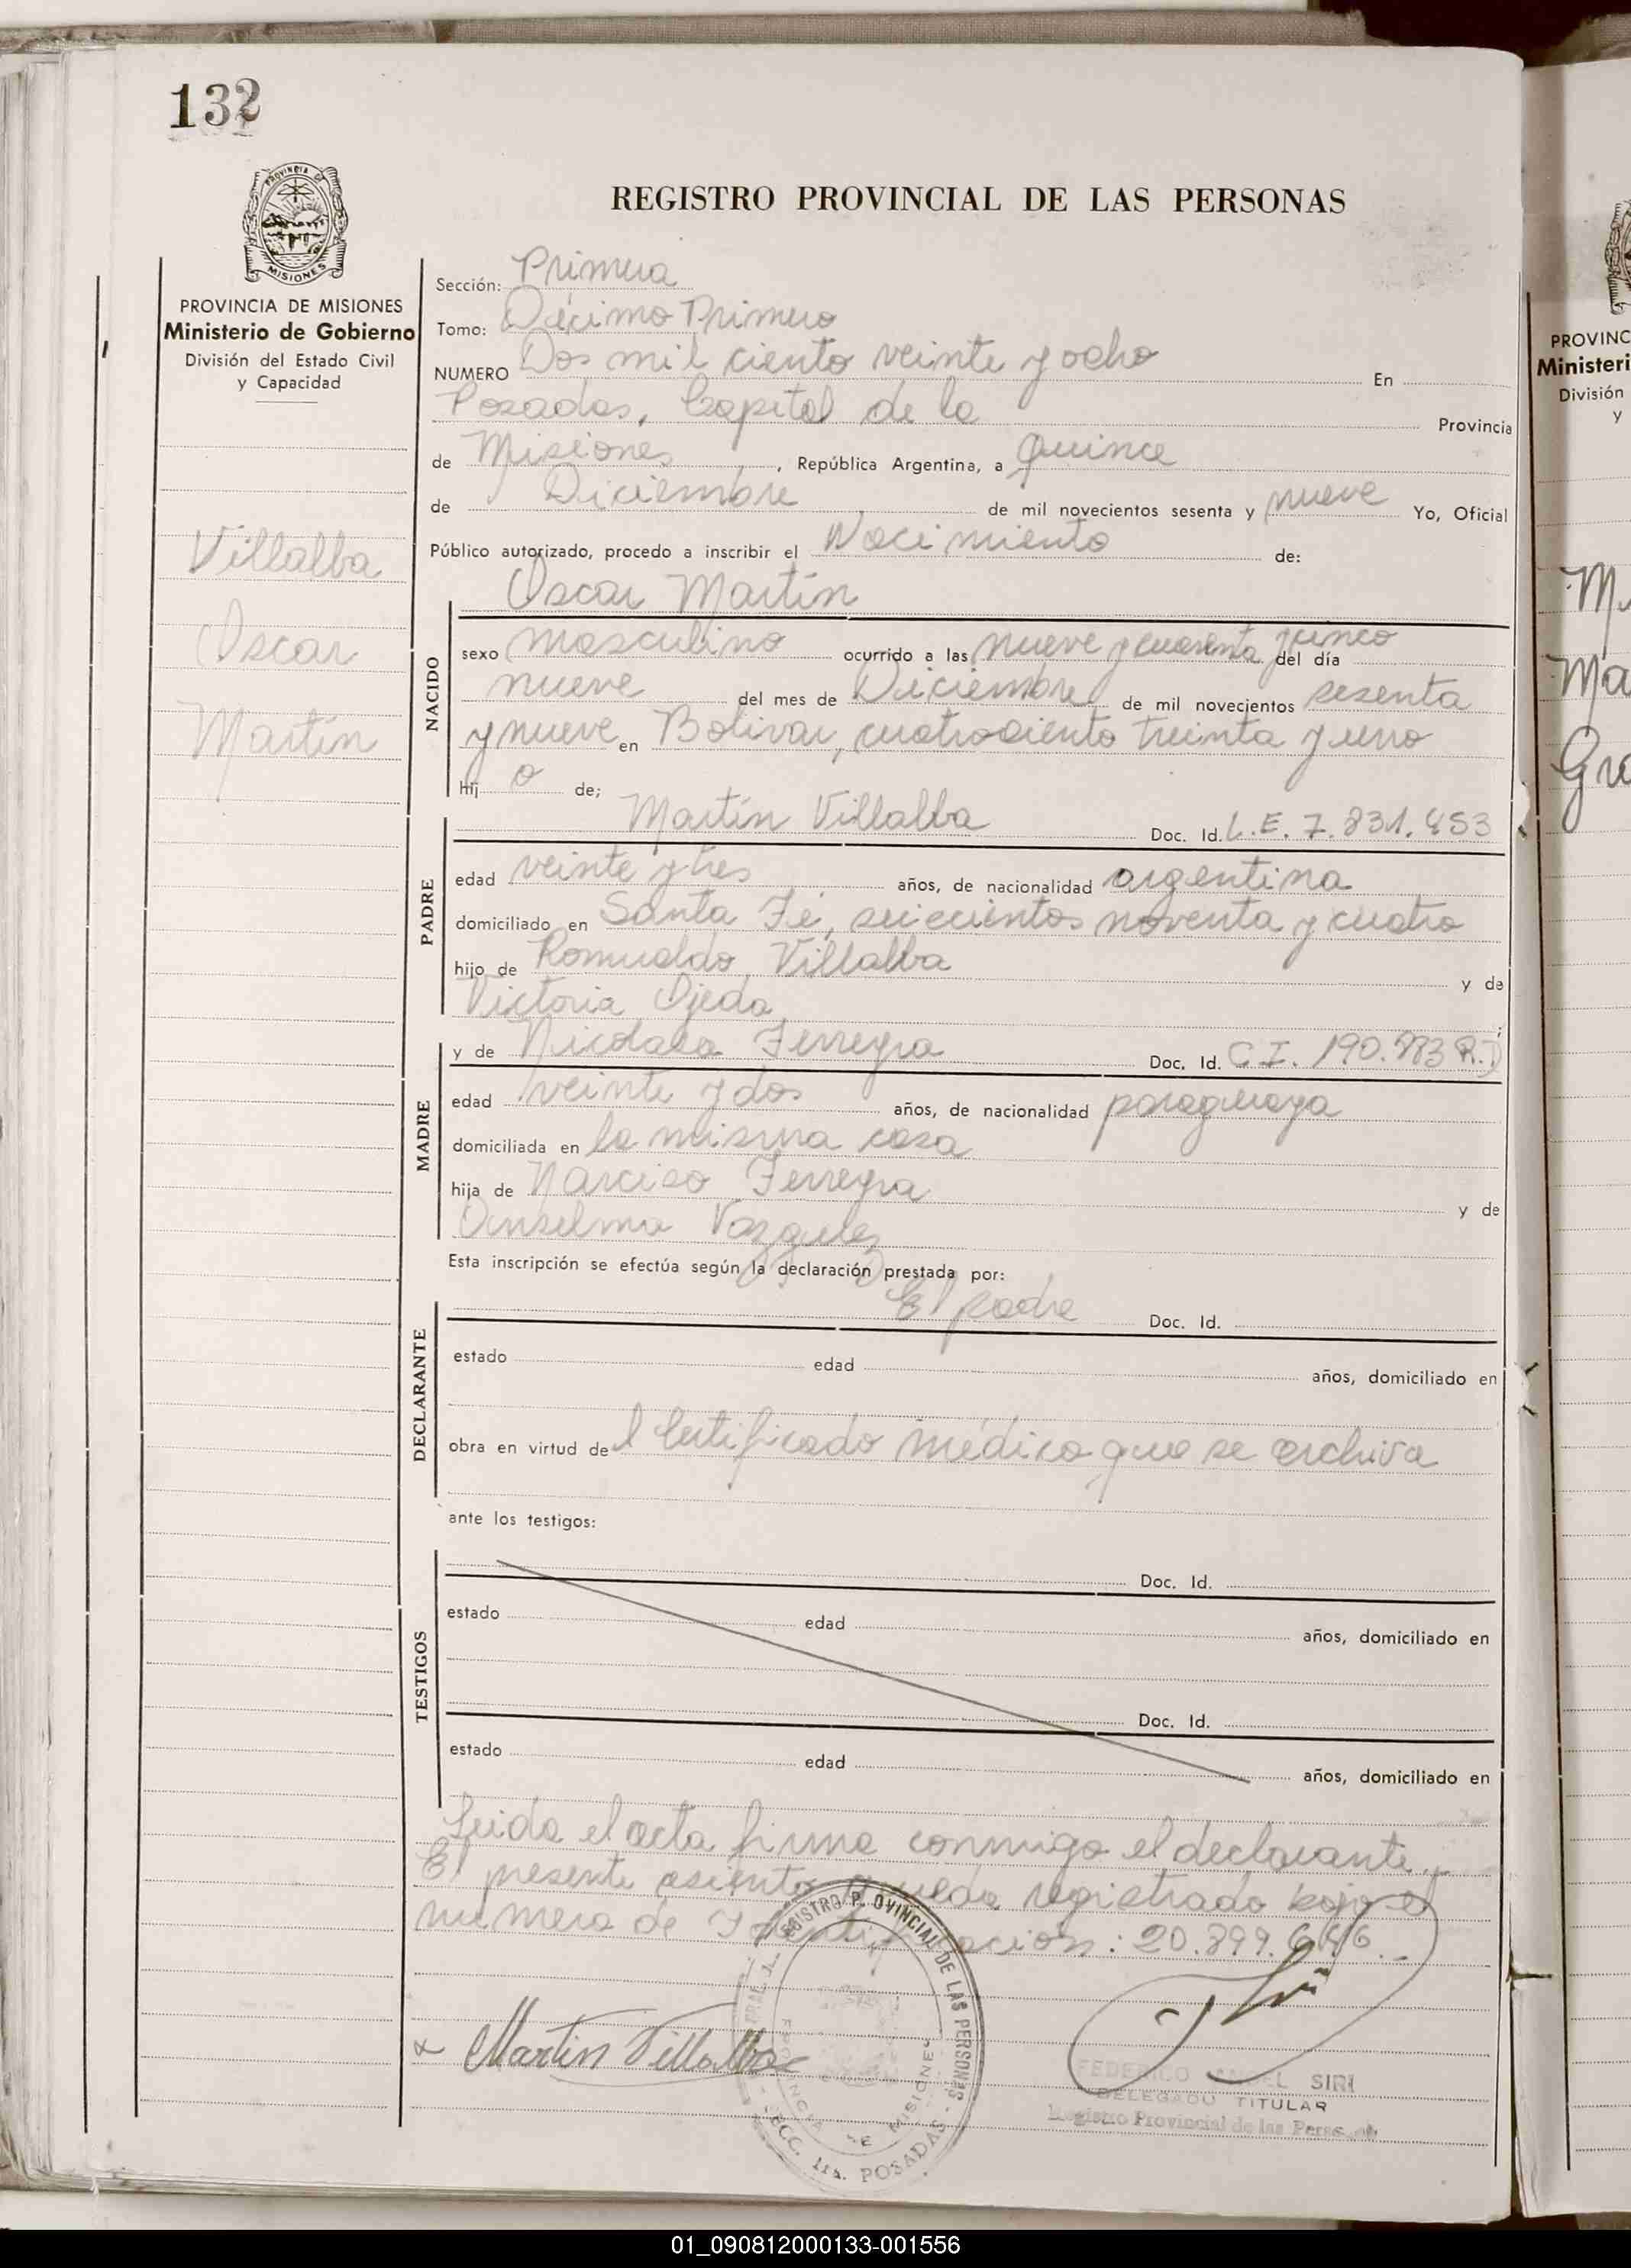 132
REGISTRO PROVINCIAL DE LAS PERSONAS
PROVINCIA DE MISIONES
Ministerio de Gobierno
División del Estado Civil
y Capacidad
Villalba
Oscar
Martín
Sección: Primera
Tomo: Décimo Primero
NUMERO Dos mil ciento veinte y ocho En
Posadas, Capital de la Provincia
de Misiones, República Argentina, a Quince
de Diciembre de mil novecientos sesenta y nueve Yo, Oficial
Público autorizado, procedo a inscribir el Nacimiento de:
Oscar Martín
NACIDO
sexo masculino ocurrido a las nueve y cuarenta y cinco del día
nueve del mes de Diciembre de mil novecientos sesenta
y nueve en Bolivar, cuatrociento treinta y uno
Hij o de;
Martín Villalba Doc. Id. L.E. 7.831.453
PADRE
edad veinte y tres años, de nacionalidad argentina
domiciliado en Santa Fé, seiscientos noventa y cuatro
hijo de Romualdo Villalba y de
Victoria Ojeda ;
MADRE
y de Nicolasa Ferreyra Doc. Id. C.I. 190.
edad veinte y dos años, de nacionalidad paraguaya
domiciliada en la misma casa
hija de Narciso Ferreyra y de
Anselma Vazquez
Esta inscripción se efectúa según la declaración prestada por:
El padre Doc. Id.
DECLARANTE
estado edad años, domiciliado en
obra en virtud del Certificado médico que se archiva
ante los testigos:
Doc. Id.
TESTIGOS
estado edad años, domiciliado en
Doc. Id.
estado edad años, domiciliado en
Leída el acta firma conmigo el declarante.
El presente asiento queda registrado bajo el
número de Identificación: 20.899.646
Martin Villalba
REGISTRO PROVINCIAL DE LAS PERSONAS
PROVINCIA DE MISIONES
SECC. 1ra. POSADAS
FEDERICO SIRI
DELEGADO TITULAR
Registro Provincial de las Personas
PROVINC
Ministeri
División
y
Ma
Gra
01_090812000133-001556